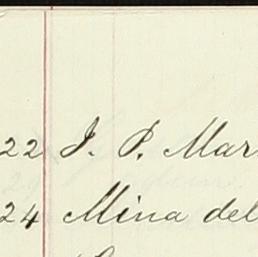 22 J. P. Mar
24 Mina del